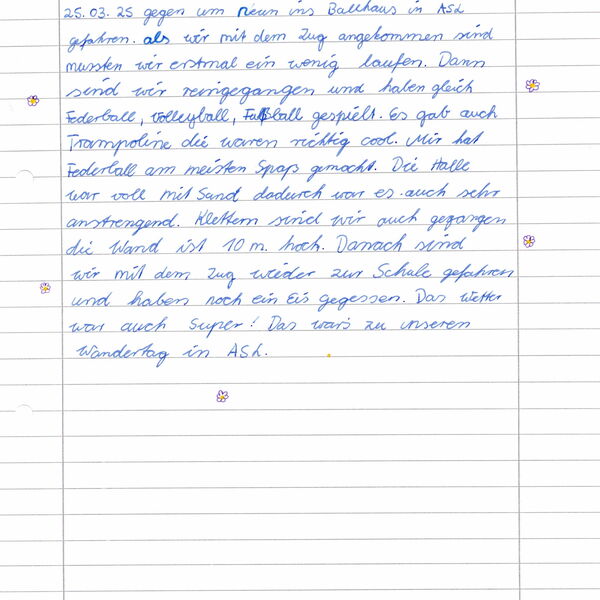 25.03.25 gegen um neun ins Ballhaus in ASL
gefahren. als wir mit dem Zug angekommen sind
mussten wir erstmal ein wenig laufen. Dann
sind wir reingegangen und haben gleich
Federball, Volleyball, Fußball gespielt. Es gab auch
Trampoline die waren richtig cool. Mir hat
Federball am meisten Spaß gemacht. Die Halle
war voll mit Sand dadurch war es auch sehr
anstrengend. Klettern sind wir auch gegangen
die Wand ist 10 m. hoch. Danach sind
wir mit dem Zug wieder zur Schule gefahren
und haben noch ein Eis gegessen. Das Wetter
war auch Super! Das wars zu unseren
Wandertag in ASL.